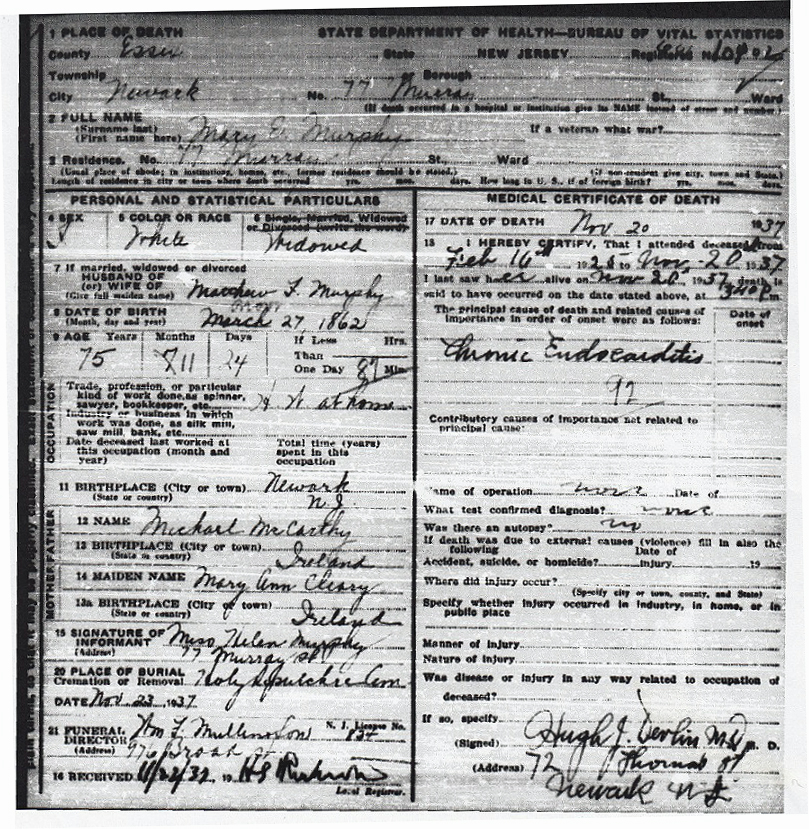 1 PLACE OF DEATH STATE DEPARTMENT OF HEALTH—BUREAU OF VITAL STATISTICS
County Essex State NEW JERSEY
Township Borough
City Newark No. 77 Murray St. Ward
(If death occurred in a hospital or institution give its NAME instead of street and number.)
2 FULL NAME
(Surname last)
(First name here) Mary E. Murphy If a veteran what war?
3 Residence. No. 77 Murray St. Ward
(Usual place of abode; in institutions, homes, etc., former residence should be stated.) (If non-resident give city, town and State.)
Length of residence in city or town where death occurred yrs. mos. days. How long in U. S., if of foreign birth? yrs. mos. days.
PERSONAL AND STATISTICAL PARTICULARS
4 SEX 5 COLOR OR RACE 6 Single, Married, Widowed
or Divorced (write the word)
F White Widowed
7 If married, widowed or divorced
HUSBAND OF
(or) WIFE OF Matthew F. Murphy
(Give full maiden name)
8 DATE OF BIRTH March 27, 1862
(Month, day and year)
9 AGE Years Months Days If Less Hrs.
Than
One Day Min.
75 24
OCCUPATION
Trade, profession, or particular
kind of work done, as spinner,
sawyer, bookkeeper, etc. H. W. at home
Industry or business in which
work was done, as silk mill,
saw mill, bank, etc.
Date deceased last worked at
this occupation (month and
year)
Total time (years)
spent in this
occupation
11 BIRTHPLACE (City or town) Newark
(State or country) N. J.
FATHER
12 NAME Michael McCarthy
13 BIRTHPLACE (City or town)
(State or country) Ireland
MOTHER
14 MAIDEN NAME Mary Ann Cleary
13a BIRTHPLACE (City or town)
(State or country) Ireland
15 SIGNATURE OF
INFORMANT Miss Helen Murphy
(Address) 77 Murray St
20 PLACE OF BURIAL
Cremation or Removal Holy Sepulchre Cem
DATE Nov 23 1937
21 FUNERAL
DIRECTOR Wm F. Mullin & Son N. J. License No.
(Address) 976 Broad St
16 RECEIVED 19
Local Registrar.
MEDICAL CERTIFICATE OF DEATH
17 DATE OF DEATH Nov. 20 1937
18 I HEREBY CERTIFY, That I attended deceased from
Feb 16th 1925 to Nov. 20 1937
I last saw her alive on Nov 20, 1937 death is
said to have occurred on the date stated above, at m.
The principal cause of death and related causes of
importance in order of onset were as follows:
Date of
onset
Chronic Endocarditis
92
Contributory causes of importance not related to
principal cause:
Name of operation none Date of
What test confirmed diagnosis? none
Was there an autopsy? no
If death was due to external causes (violence) fill in also the
following Date of
Accident, suicide, or homicide? injury 19
Where did injury occur?
(Specify city or town, county, and State)
Specify whether injury occurred in industry, in home, or in
public place
Manner of injury
Nature of injury
Was disease or injury in any way related to occupation of
deceased?
If so, specify
(Signed) Hugh J. Devlin M.D. M. D.
(Address) 72 Thomas St
Newark N. J.